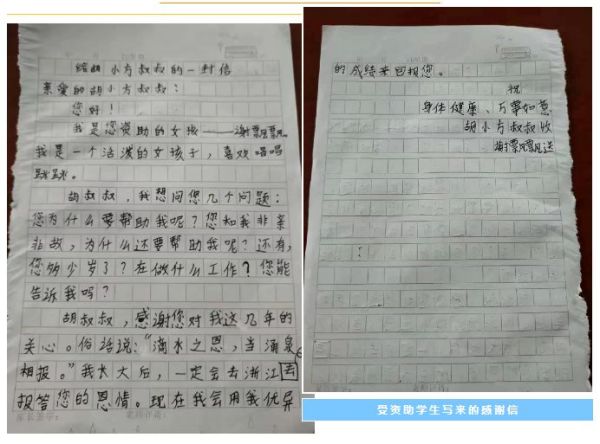 给胡小方叔叔的一封信
亲爱的胡小方叔叔：
您好！
我是您资助的女孩——谢飘飘。
我是一个活泼的女孩子，喜欢唱唱
跳跳。
胡叔叔，我想问您几个问题：
您为什么要帮助我呢？您和我非亲
非故，为什么还要帮助我呢？还有，
您多少岁了？在做什么工作？您能
告诉我吗？
胡叔叔，感谢您对我这几年的
关心。俗话说：“滴水之恩，当涌泉
相报。”我长大后，一定会去浙江去
报答您的恩情。现在我会用我优异
的成绩来回报您。
祝
身体健康、万事如意
胡小方叔叔收
谢飘飘送
受资助学生写来的感谢信